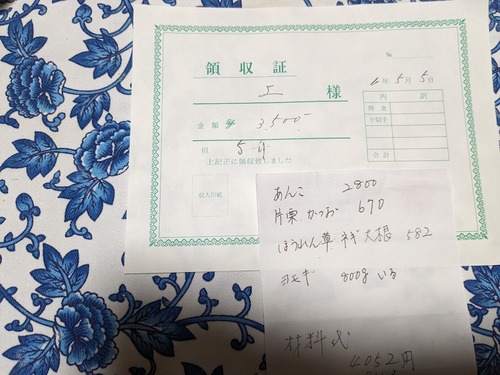 №
領収証
様
6年5月5日
金額 3,500-
但
上記正に領収致しました
収入印紙
内訳
現金
小切手
合計
あんこ 2800
片栗 かつお 670
ほうれん草 ネギ 大根 582
ヨモギ 800g いる
材料代
4052円